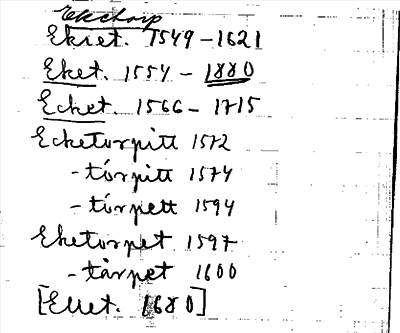 Ekiet. 1549-1621
Eket. 1554-1880
Ecket. 1566-1715
Ecketorpitt 1572
-tórpitt 1574
-tórpett 1594
Eketorpet 1597
-tårpet 1600
[Ellet. 1680]